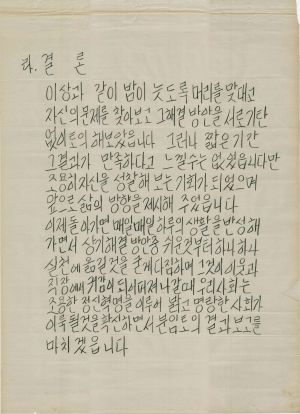 타. 결 론
이상과 같이 밤이 늦도록 머리를 맞대고
자신의 문제를 찾아보고 그 해결 방안을 서로 기탄
없이 토의 해보았읍니다 그러나 짧은 기간
그결과가 만족하다고 느낄수는 없겠읍니다만
조용히 자신을 성찰해 보는 기회가 되었으며
앞으로 삶의 방향을 제시해 주었읍니다
이제 돌아가면 매일매일 하루의 생활을 반성해
가면서 상기 해결 방안중 쉬운것부터 하나 하나
실천에 옮길것을 굳게 다짐하며 그것이 이웃과
직장에 메아리 되어 퍼져 나갈때 우리사회는
조용한 정신혁명을 이루어 밝고 명랑한 사회가
이룩될것을 확신하면서 분임토의 결과 보고를
마치겠읍니다